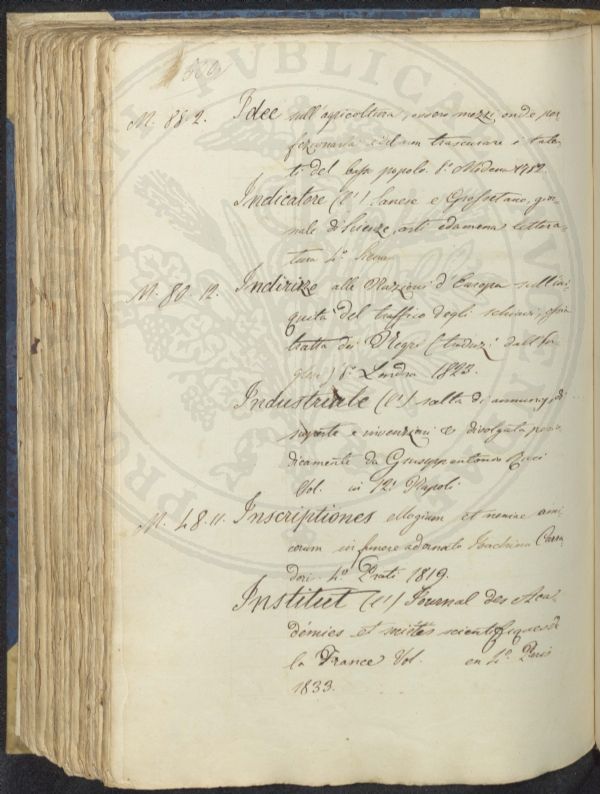 M. 88. 2. Idee sull'agricoltura, ovvero mezzi onde per
fezionarla ed il non trascurare i talen
ti del basso popolo. 8.° Modena 1782.
Indicatore (l') Sanese e Grossetano, gior
nale di Scienze, arti ed amena lettera
tura 4.° Siena
M. 80. 12. Indirizzo alle Nazioni d'Europa sull'ini
quità del traffico degli schiavi, ossia
tratta dei Negri (traduz.e dall'In
glese) 8.° Londra 1823.
Industriale (l') scelta di annunzj di
scoperte e invenzioni &c divolgata perio
dicamente da Giuseppantonio Ricci
Vol. in 12.° Napoli
M. 48. 11. Inscriptiones ellogium et neniae ami
corum in funere adornato Joachimo Carra
dori. 4.° Prati 1819.
Institut (L') Journal des Aca
démies et scientifiques de
la France Vol. en 4.° Paris
1833.